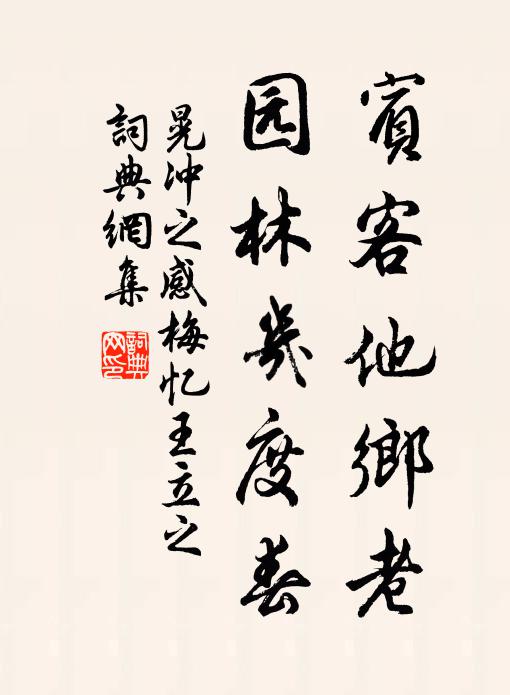 賓客他鄉老
园林幾度春
晁冲之感梅忆王立之
詞典網集
詞典網印